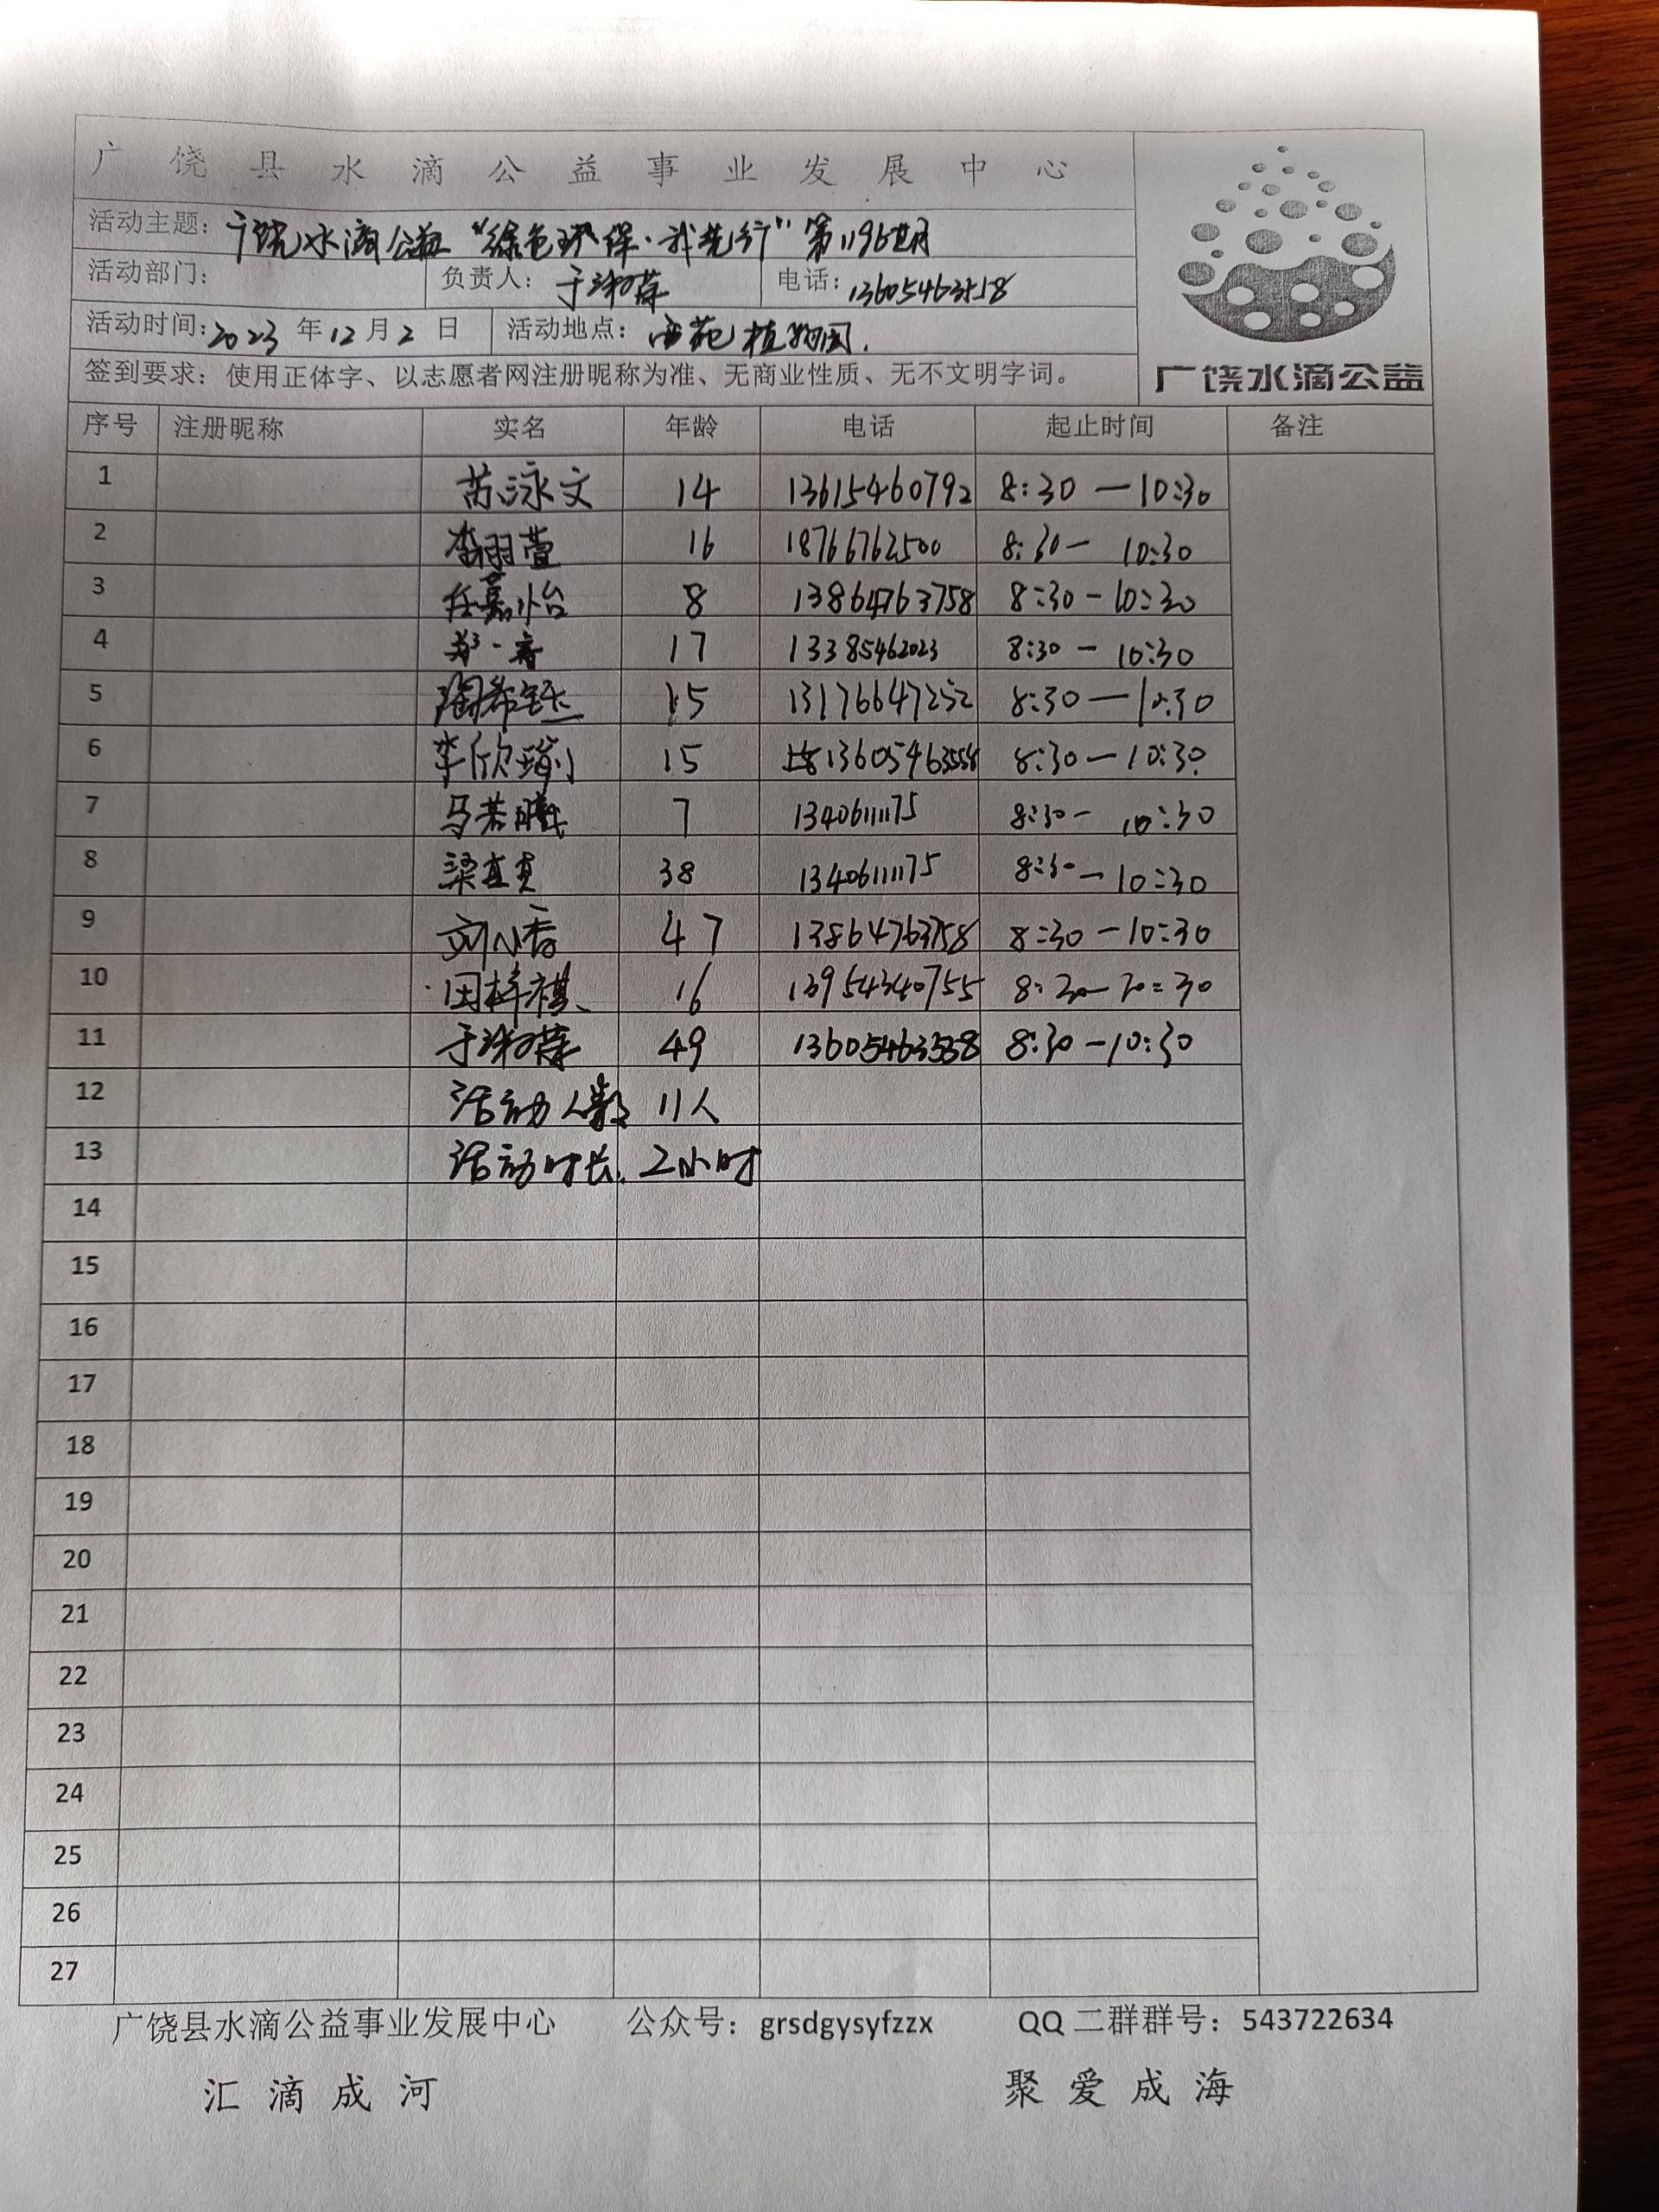 广饶县水滴公益事业发展中心
活动主题：广饶水滴公益“绿色环保·我先行”第1196期
活动部门： 负责人：于淑 电话：13605463558
活动时间：2023年12月2日 活动地点：西苑植物园.
签到要求：使用正体字、以志愿者网注册昵称为准、无商业性质、无不文明字词。
广饶水滴公益
序号 注册昵称 实名 年龄 电话 起止时间 备注
1 苏泳文 14 13615460792 8:30 — 10:30
2 李羽萱 16 18766762500 8:30 — 10:30
3 任嘉怡 8 13864763758 8:30 — 10:30
4 17 13385462023 8:30 — 10:30
5 陶希钰 15 13176647252 8:30 — 10:30
6 李欣瑜 15 13605463558 8:30 — 10:30
7 马若曦 7 13406111175 8:30 — 10:30
8 梁真真 38 13406111175 8:30 — 10:30
9 刘小香 47 13864763758 8:30 — 10:30
10 田梓祺 16 13954340755 8:30
11 于淑 49 13605463558 8:30 — 10:30
12 活动人数 11人
13 活动时长. 2小时
14
15
16
17
18
19
20
21
22
23
24
25
26
27
广饶县水滴公益事业发展中心 公众号：grsdgysyfzzx QQ 二群群号：543722634
汇滴成河 聚爱成海